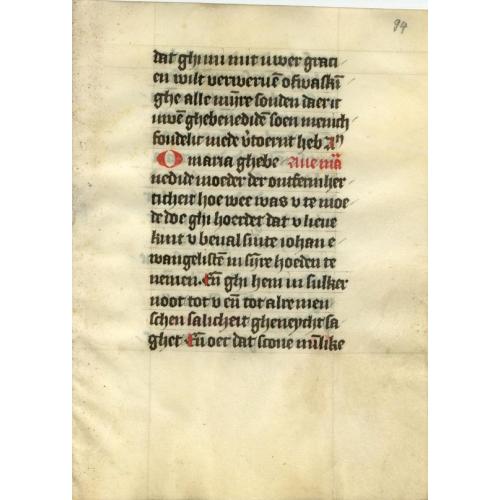 94
dat ghi mi mit uwer graci
en wilt verwervē ofwaskī
ghe alle mijre sonden daer ic
uwē ghebenedidē soen menich
foudelic mede v̄toernt heb Aȳ
O maria ghebe Ave mā
nedide moeder der ontfermher
ticheit hoe wee was v te moe
de doe ghi hoerdet dat v lieve
kint v beval sinte iohan e
wangelistē in sijre hoeden te
nemen. Eū ghi hem in sulker
noot tot v eū tot alre men
schen salicheit gheneycht sa
ghet Eū oec dat scone mīlike